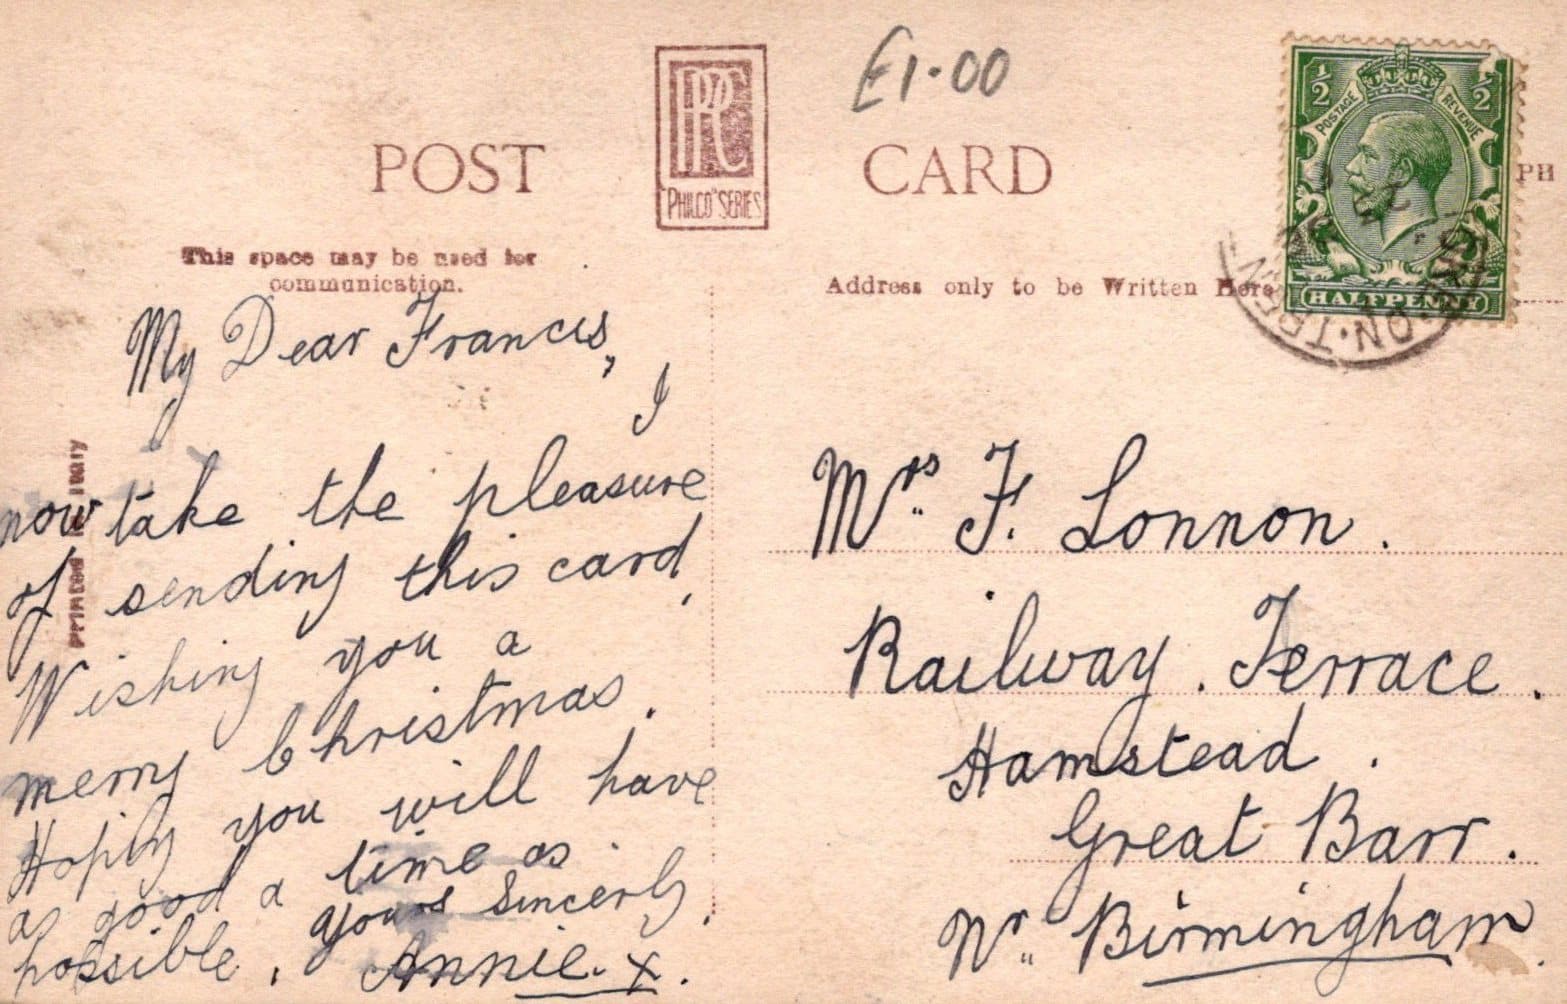 £1.00
POST CARD
"PHILCO" SERIES
This space may be used for
communication.
Address only to be Written Here
PH
½ ½
POSTAGE REVENUE
HALFPENNY
My Dear Francis,
I
now take the pleasure
of sending this card,
Wishing you a
merry Christmas.
Hoping you will have
as good a time as
possible.
Yours Sincerly,
Annie. x.
Mrs F. Lonnon.
Railway. Terrace.
Hamstead.
Great Barr.
Nr Birmingham.
PRINTED IN
ON·TRENT